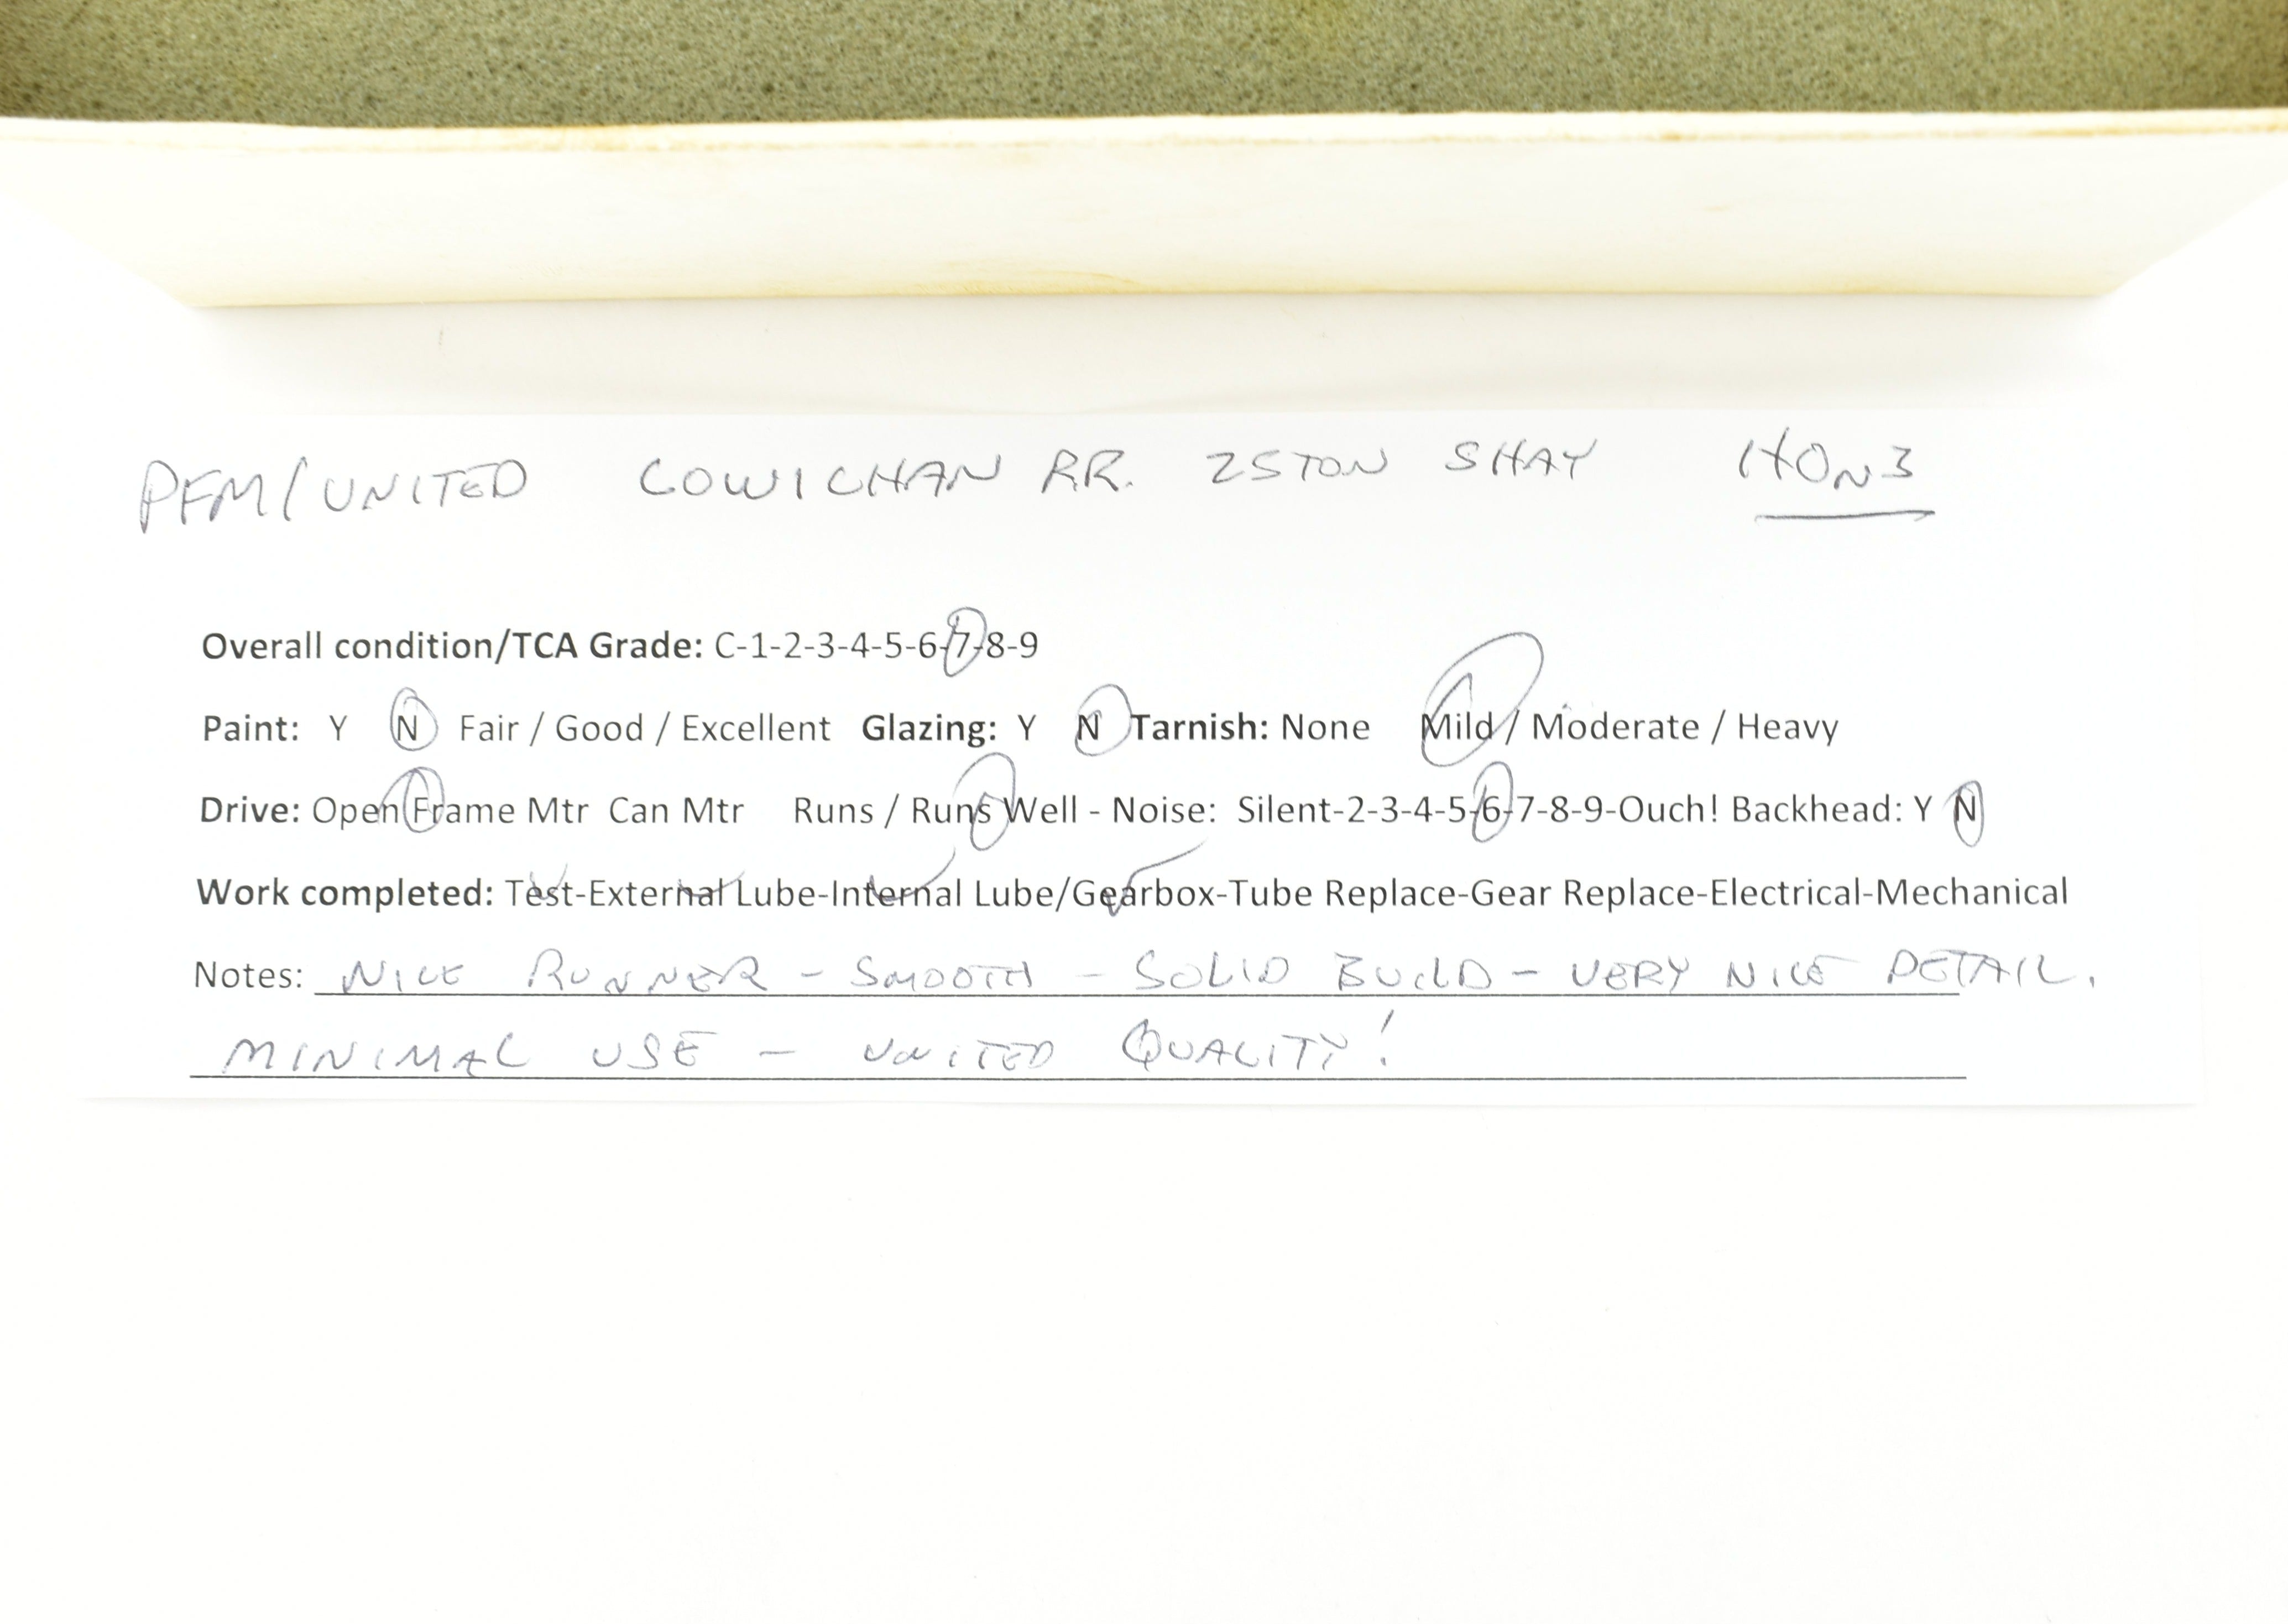 PFM/UNITED COWICHAN RR. 25TON SHAY HOn3
Overall condition/TCA Grade: C-1-2-3-4-5-6-7-8-9
Paint: Y N Fair / Good / Excellent Glazing: Y N Tarnish: None Mild / Moderate / Heavy
Drive: Open Frame Mtr Can Mtr Runs / Runs Well - Noise: Silent-2-3-4-5-6-7-8-9-Ouch! Backhead: Y N
Work completed: Test-External Lube-Internal Lube/Gearbox-Tube Replace-Gear Replace-Electrical-Mechanical
Notes: NICE RUNNER - SMOOTH - SOLID BUILD - VERY NICE DETAIL.
MINIMAL USE - UNITED QUALITY!